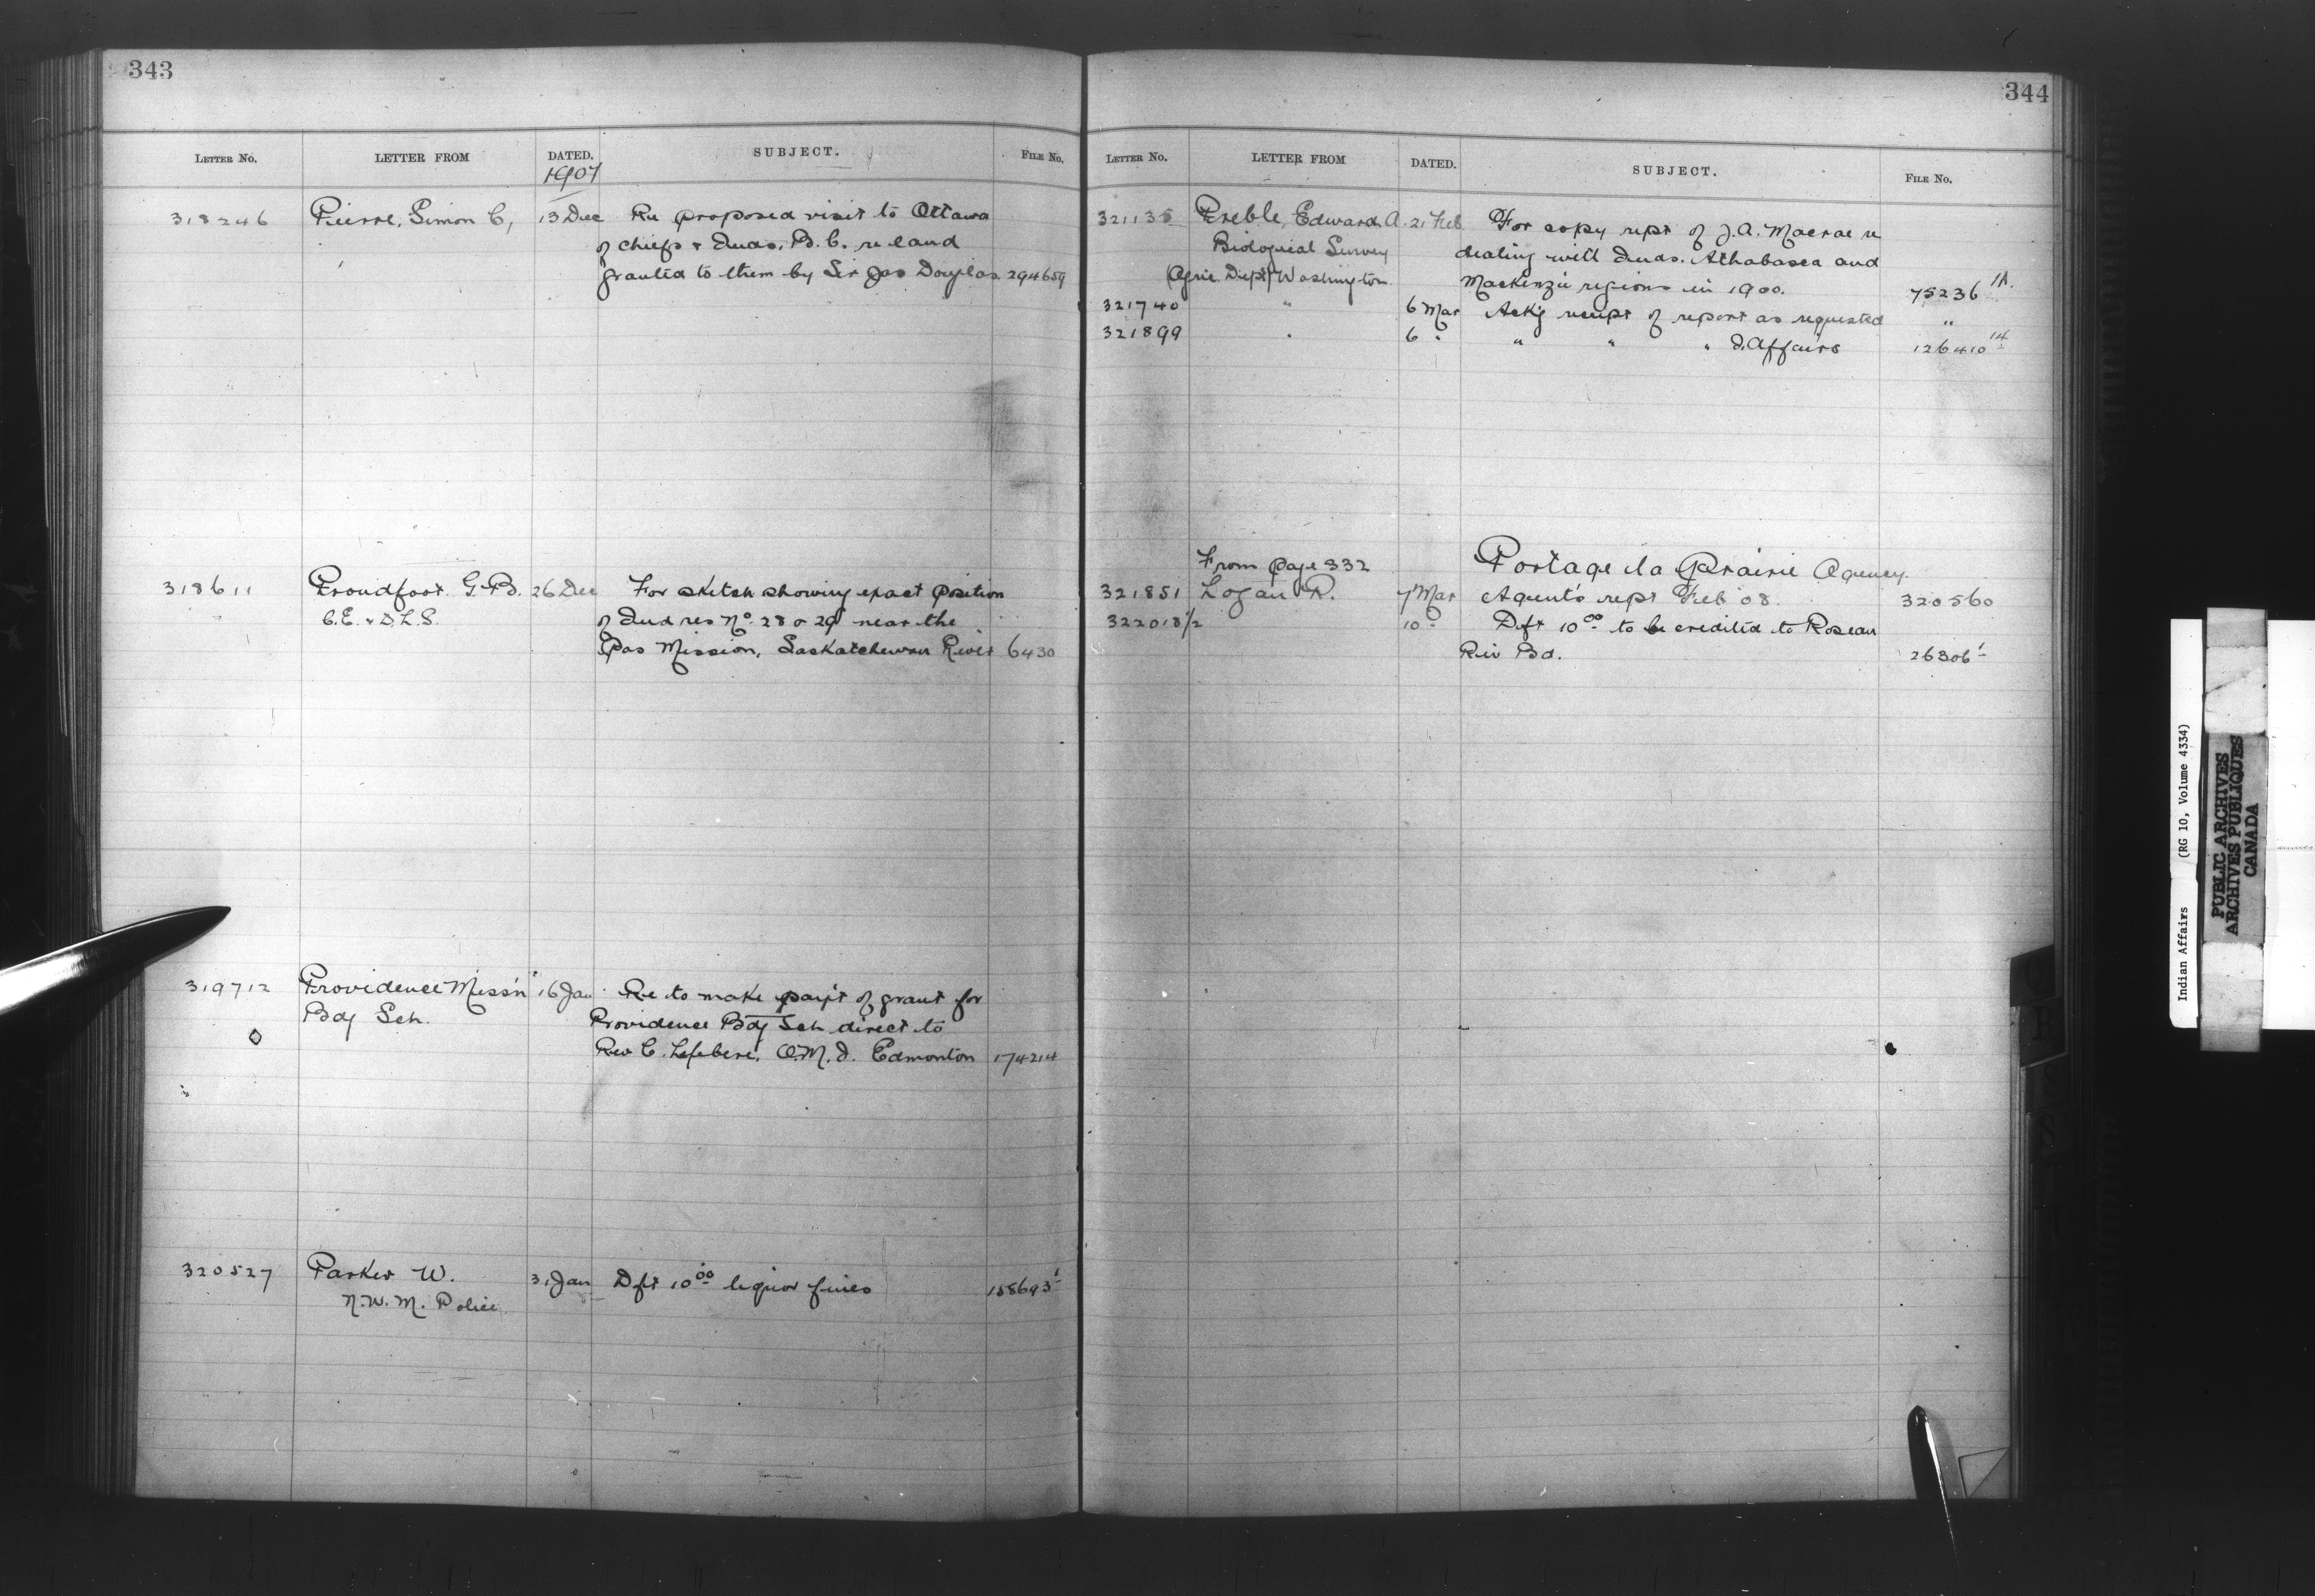 343
LETTER NO. LETTER FROM DATED. SUBJECT. FILE NO.
1907
318246 Pierre, Simon C, 13 Dec Re proposed visit to Ottawa
of chiefs & Inds, B.C. re land
granted to them by Sir Jas Douglas 294659
318611 Proudfoot G.B. 26 Dec For sketch showing exact position
C.E. & D.L.S. of Ind res No. 28 or 29 near the
Pas Mission, Saskatchewan River 6430
319712 Providence Miss'n 16 Jan Re to make pay't of grant for
Bdg Sch. Providence Bdg Sch direct to
Rev C. Lefebvre, O.M.I. Edmonton 174214
320527 Parker W. 31 Jan Dft 10.00 liquor fines 158693 1
N.W.M. Police
344
LETTER NO. LETTER FROM DATED. SUBJECT. FILE NO.
321135 Preble, Edward A. 21 Feb For copy rept of J.A. Macrae re
Biological Survey dealing with Inds. Athabasca and
(Agric Dept) Washington Mackenzie regions in 1900. 75236 1A.
321740 " 6 Mar Ack'g receipt of report as requested "
321899 " 6 " " " " I. Affairs 126410 14
From page 332 Portage la Prairie Agency.
321851 Logan R. 7 Mar Agent's rept Feb 08. 320560
322018 1/2 10 " Dft 10.00 to be credited to Roseau
Riv Bd. 26306 1
Indian Affairs (RG 10, Volume 4334)
PUBLIC ARCHIVES
ARCHIVES PUBLIQUES
CANADA